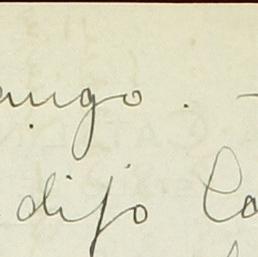 ango. -
dijo Co